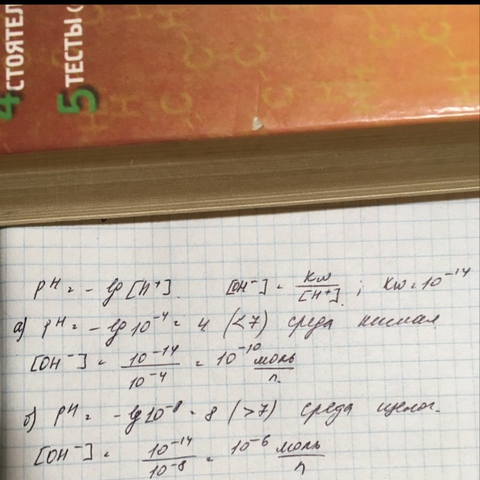 4 СТОЯТЕЛ
5 ТЕСТЫ
pH = - lg [H⁺]. [OH⁻] = Kw / [H⁺] ; Kw = 10⁻¹⁴
а) pH = - lg 10⁻⁴ = 4 (<7) среда кислая
[OH⁻] = 10⁻¹⁴ / 10⁻⁴ = 10⁻¹⁰ моль / л.
б) pH = - lg 10⁻⁸ = 8 (>7) среда щелоч.
[OH⁻] = 10⁻¹⁴ / 10⁻⁸ = 10⁻⁶ моль / л